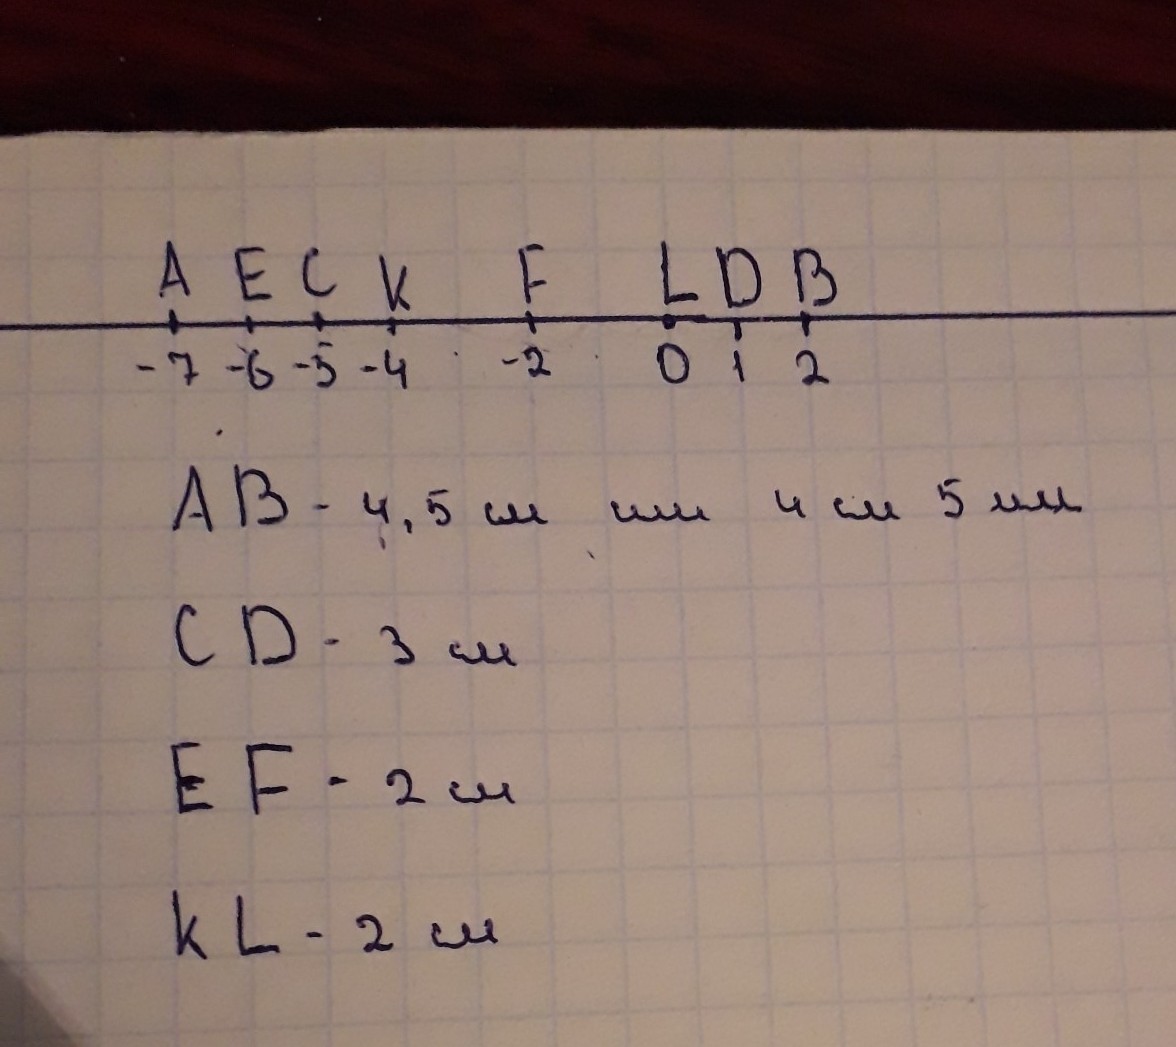 A E C K F L D B
-7 -6 -5 -4 -2 0 1 2
AB - 4,5 см или 4 см 5 мм
CD - 3 см
EF - 2 см
KL - 2 см